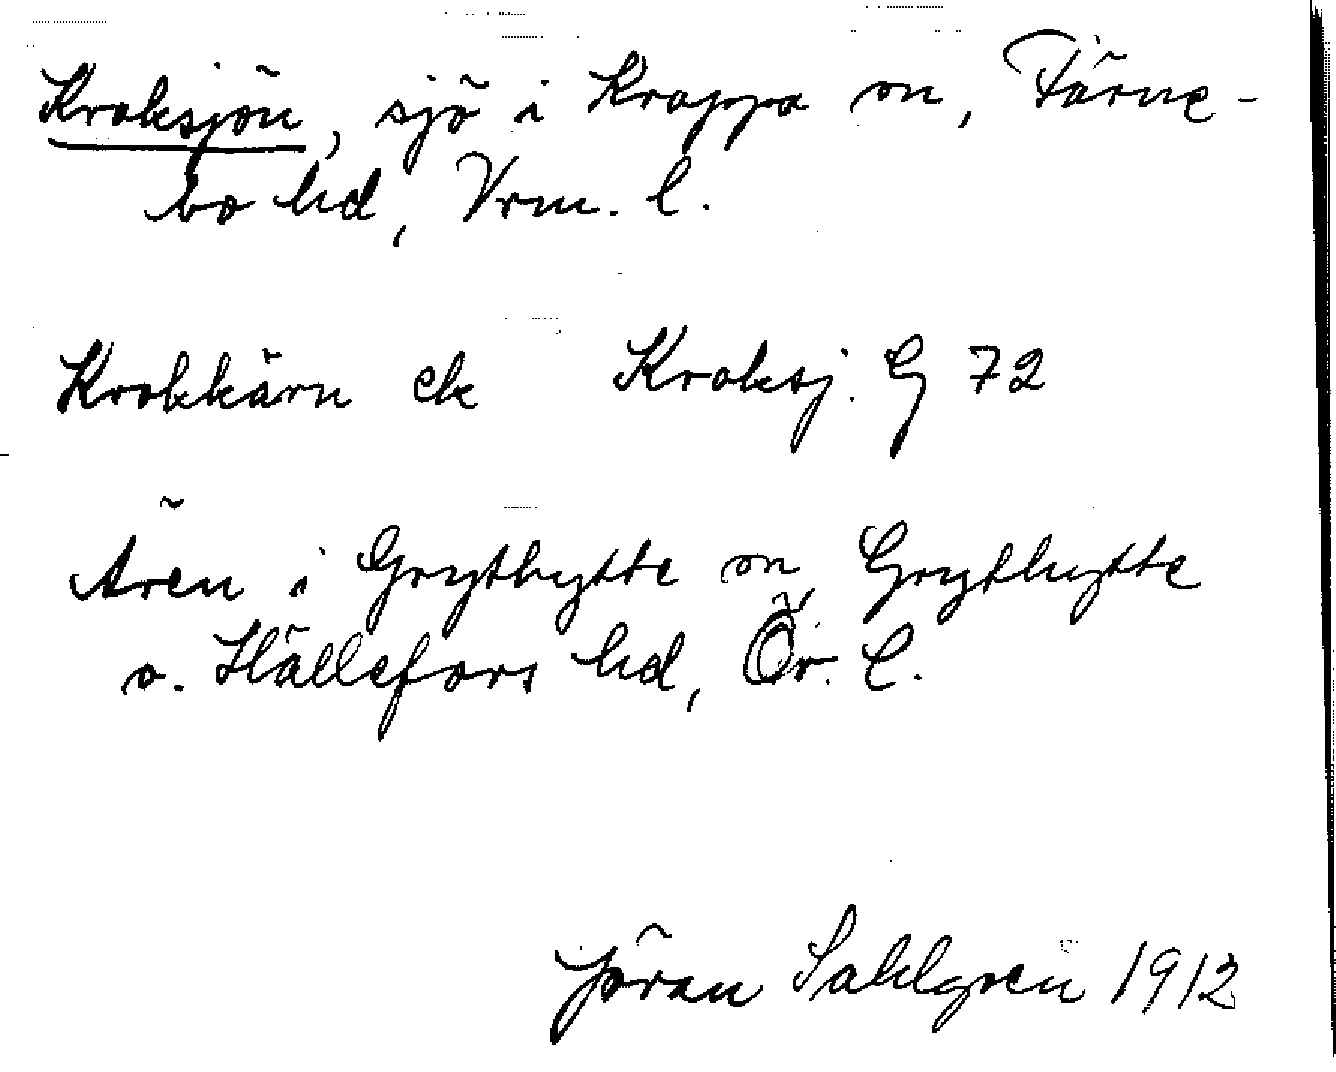 Kroksjön, sjö i Kroppa sn, Färne-
bo hd, Vrm. l.
Krokkärn ek Kroksj. G 72
Ären i Grythytte sn Grythytte
o. Hällefors hd, Ör. l.
Jöran Sahlgren 1912